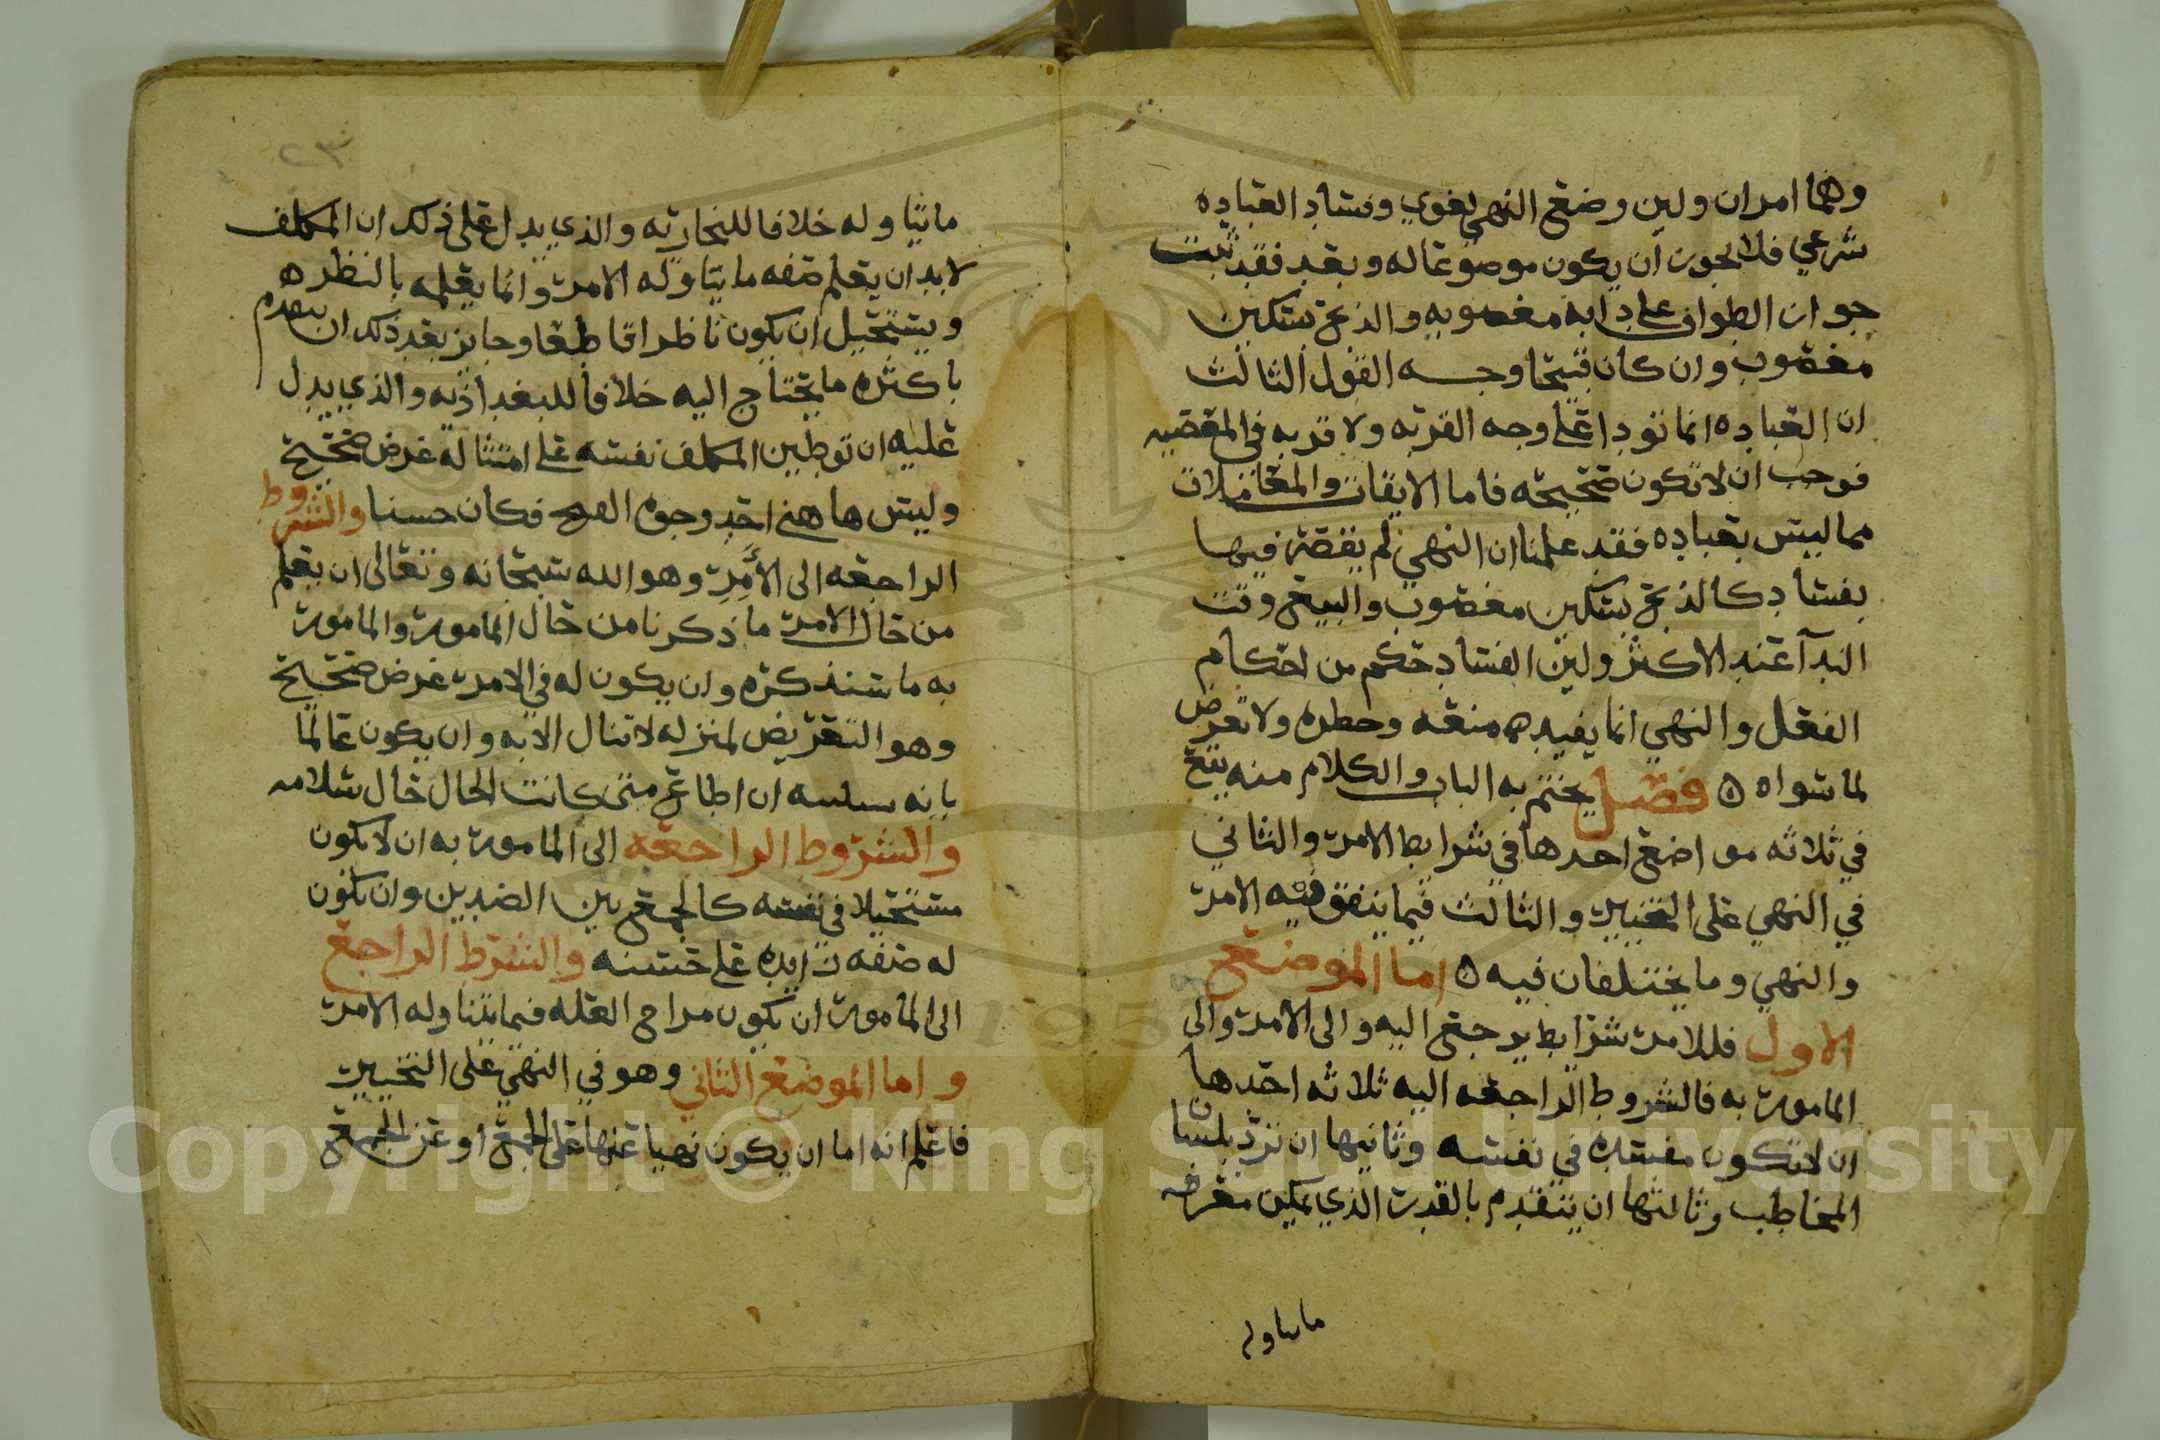 وهما امران ولين وضع النهي لغوي وفساد العباده
شرعي فلا يجوز ان يكون موضوعا له وبعد فقد ثبت
جواز الطواف على دابه مغصوبه والذبح بسكين
مغصوب وان كان قبيحا وجه القول الثالث
ان العباده انما تودا على وجه القربه ولا قربه في المعصيه
فوجب ان لا تكون صحيحه فاما الايقاعات والمعاملات
مما ليس بعباده فقد علمنا ان النهي لم يقض فيها
بفساد كالذبح بسكين مغصوب والبيع وقت
الندآ عند الاكثر ولين الفساد حكم من احكام
الفعل والنهي انما يفيد منعه وحظره ولا تعرض
لما سواه ۵ فصل يختم به الباب والكلام منه يقع
في ثلاثه مواضع احدها في شرايط الامر والثاني
في النهي على التخيير والثالث فيما يتفق فيه الامر
والنهي وما يختلفان فيه ۵ اما الموضع
الاول فللامر شرايط يرجع اليه والى الامر والى
المامور به فالشروط الراجعه اليه ثلاثه احدها
ان لا تكون مفسده في نفسه وثانيها ان ترد بلسان
المخاطب وثالثها ان يتقدم بالقدر الذي يمكن معرفه
ماىىاوله
٢٣
ما يتناوله خلافا للنجاريه والذي يدل على ذلك ان المكلف
لابد ان يعلم صفه ما يتناوله الامر وانما يعلمه بالنظر ه
ويستحيل ان يكون ناظرا قاطعا وجايز بعد ذلك ان يتقدم
باكثره ما يحتاج اليه خلافا للبغداذيه والذي يدل
عليه ان توطين المكلف نفسه على امتثاله غرض صحيح
وليس هاهنا احد وجوه القبح فكان حسنا والشروط
الراجعه الى الأمِر وهو الله سبحانه وتعالى ان يعلم
من حال الامر ما ذكرنا من حال المامور والمامور
به ما سنذكره وان يكون له في الامر غرض صحيح
وهو التعريض لمنزله لا تنال الا به وان يكون عالما
بانه سيثيبه ان اطاع متى كانت الحال حال سلامه
والشروط الراجعه الى المامور به ان لا يكون
مستحيلا في نفسه كالجمع بين الضدين وان يكون
له صفه زايده على حسنه والشرط الراجع
الى المامور ان يكون مزاح العله فيما يتناوله الامر
واما الموضع الثاني وهو في النهي على التخيير
فاعلم انه اما ان يكون نهيا عنها على الجمع او عن الجمع
Copyright © King Saud University
1957